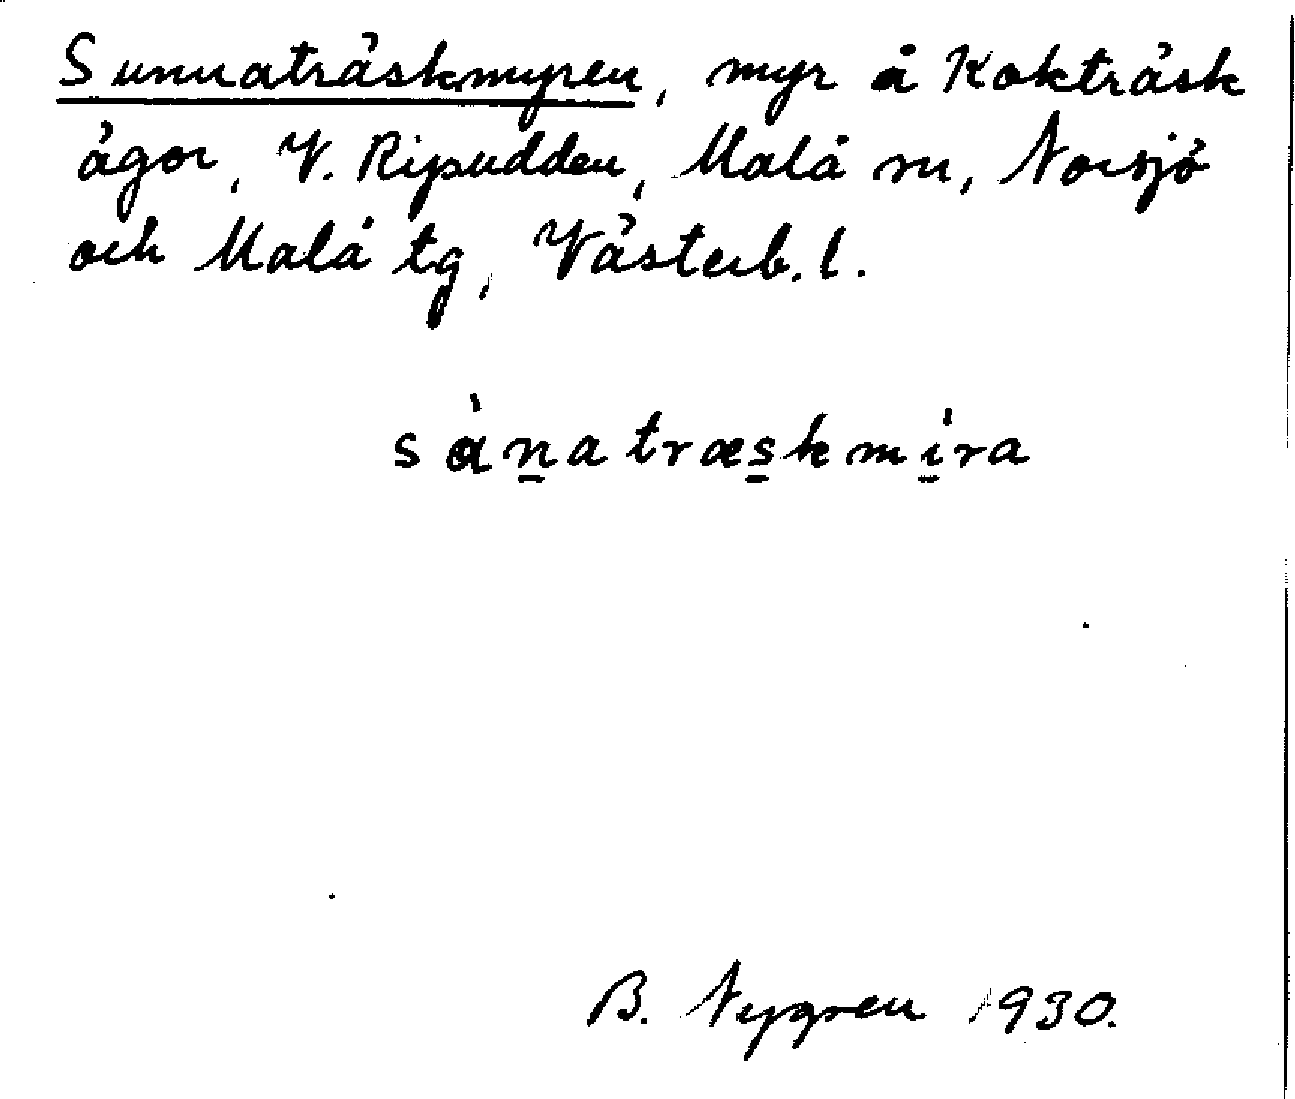 Sunnaträskmyren, myr å Kokträsk
ägor, V. Ripudden, Malå sn, Norsjö
och Malå tg, Västerb. l.
sànatræskmíra
B. Nygren 1930.